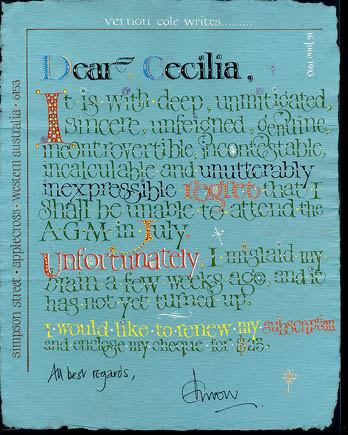 vernon cole writes.........
16 June 1993
simpson street · applecross · western australia · 6153
Dear Cecilia,
It is with deep, unmitigated,
sincere, unfeigned, genuine,
incontrovertible, incontestable,
incalculable and unutterably
inexpressible regret that I
shall be unable to attend the
A·G·M in July.
Unfortunately, I mislaid my
brain a few weeks ago, and it
has not yet turned up.
I would like to renew my subscription
and enclose my cheque for $25.
All best regards,